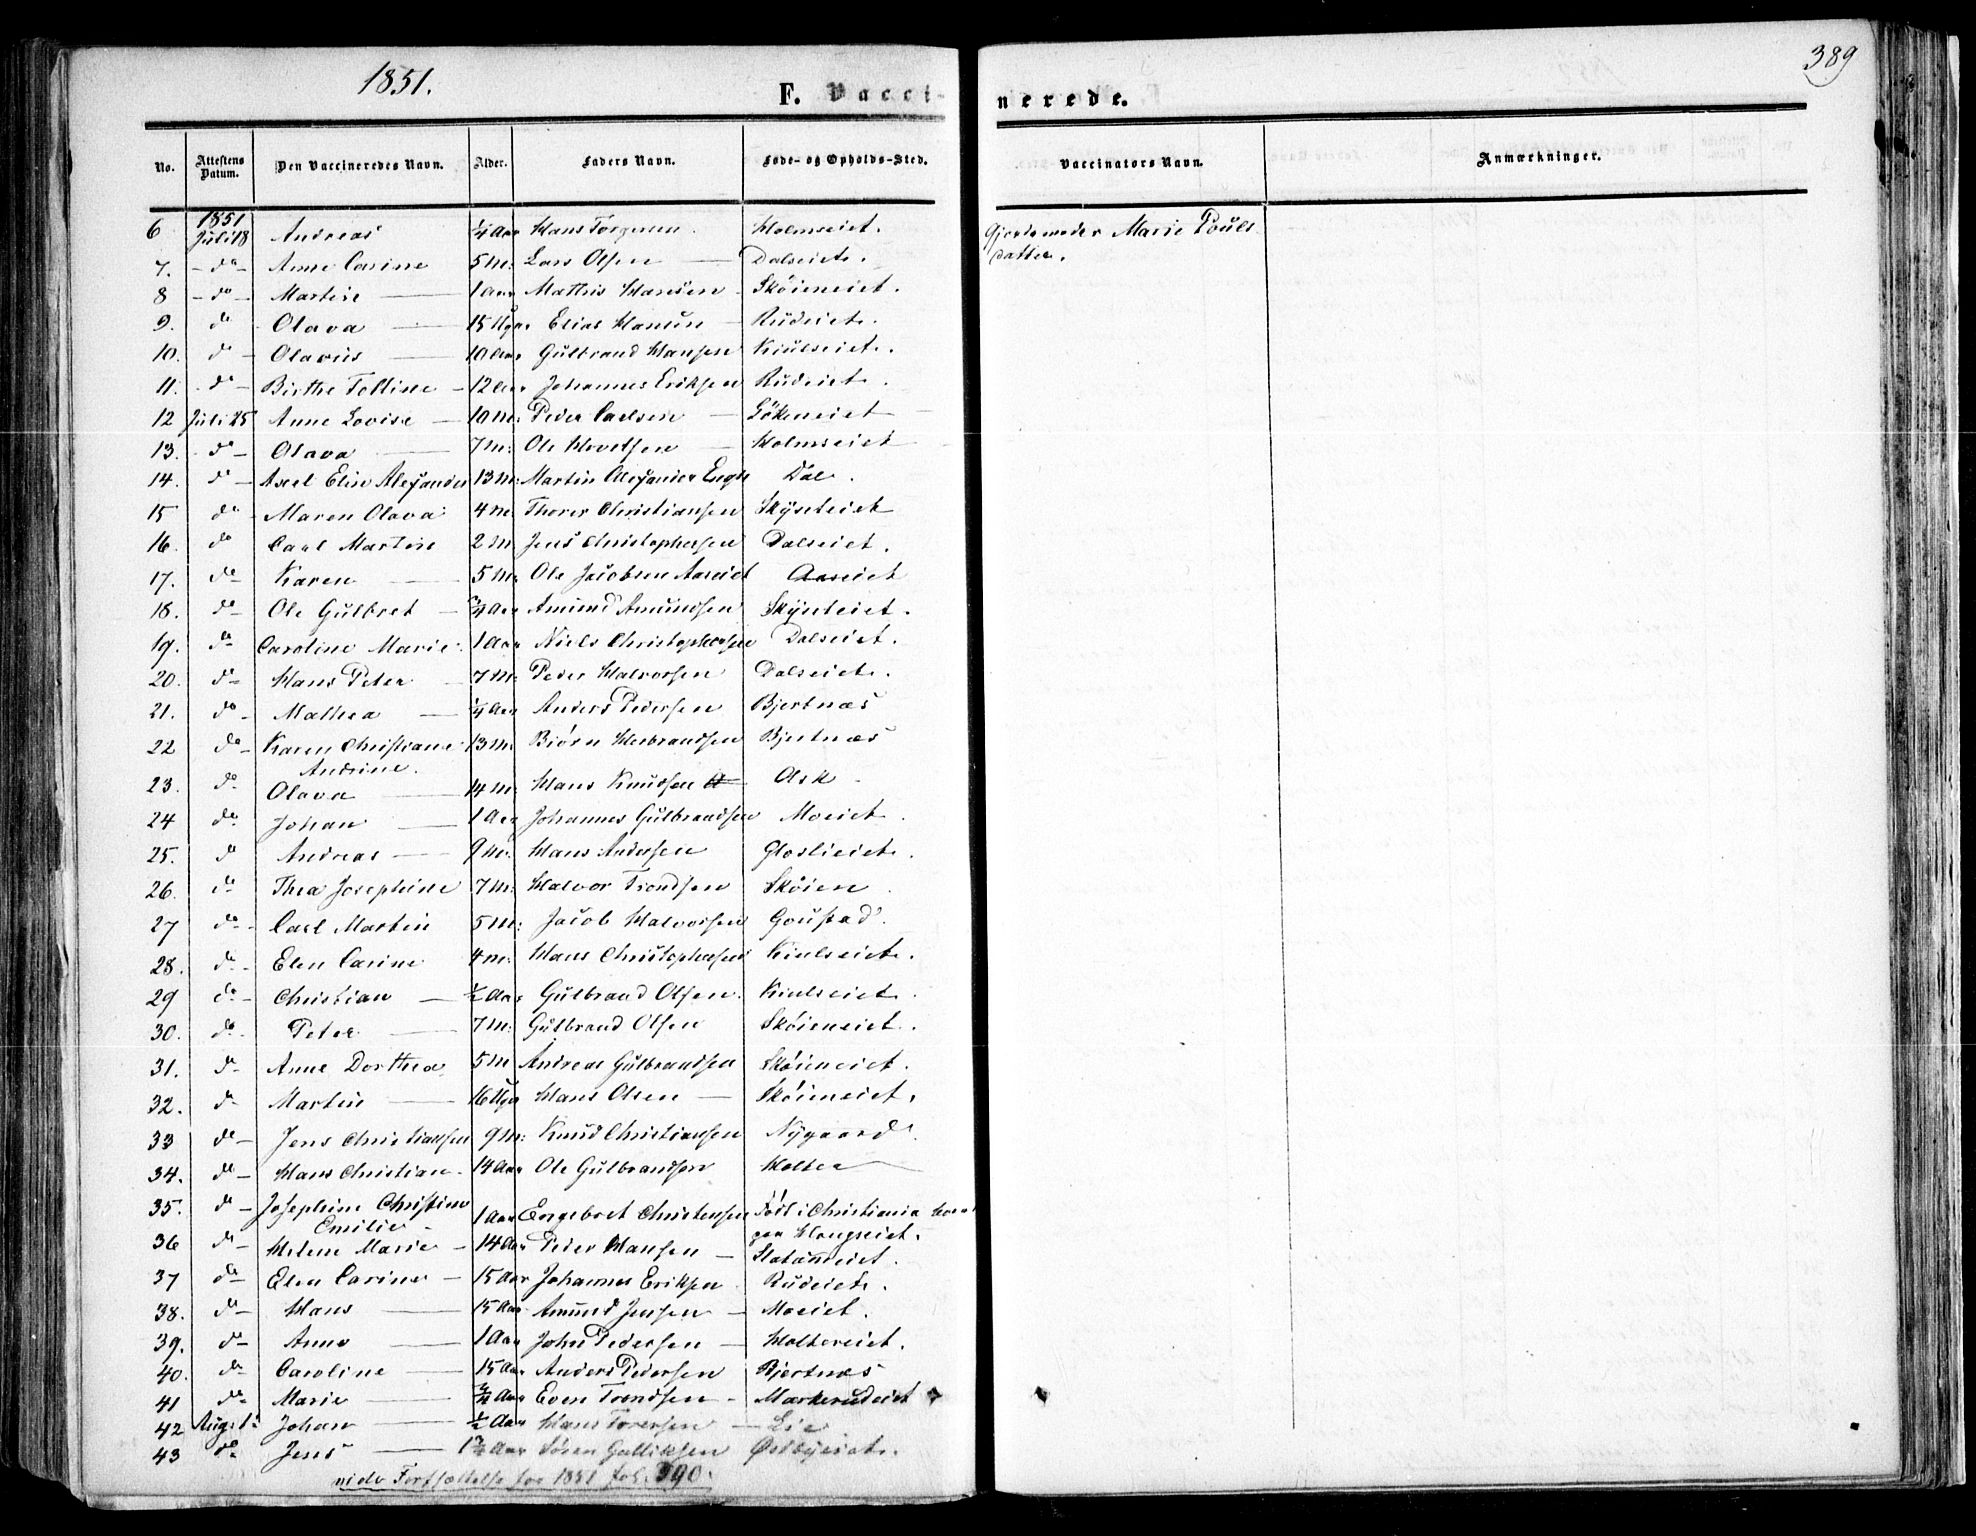 1851.
389
F. Vacci-
nerede.
No. Attestens Datum. Den Vaccineredes Navn. Alder. Faders Navn. Føde- og Opholds-Sted. Vaccinators Navn. Anmærkninger.
1851
6 Juli 18 Andreas 1/4 Aar Hans Holmseiet. Gjordemoder Marie Pouls
datter.
7. - do - Anne Carine 5 M: Lars Olsen Dalseiet.
8 - do - Martin 1 Aar Mathis Hansen Skøieneiet.
9. do Olava 15 Ugr Elias Hansen Rudeiet.
10. do Olavus 10 Aar Gulbrand Hansen Kiulseiet.
11. do Birthe Tolline 12 Aar Johannes Eriksen Rudeiet.
12 Juli 25 Anne Lovise 10 M: Peder Carlsen
13. do Olava 7 M: Ole Hovelsen Holmseiet
14. do Axel Elin Alexander 13 M: Martin Alexander Engh Dal.
15 do Maren Olava 4 M. Thorer Christiansen Skÿsteiet
16. do Carl Martin 2 M Jens Christophersen Dalseiet.
17. do Karen 5 M. Ole Jacobsen Aaseiet Aaseiet
18. do Ole Gulbret 3/4 Aar Amund Amundsen Skÿsteiet.
19. do Caroline Marie 1 Aar Niels Christophersen Dalseiet.
20. do Hans Peter 7 M. Peder Halvorsen Dalseiet.
21. do Mathea 1/4 Aar Anders Pedersen Bjertnæs
22 do Karen Christiane 13 M. Biørn Herbrandsen Bjertnæs
Andrine.
23. do Olava 14 M. Hans Knudsen Ask
24 do Johan 1 Aar Johannes Gulbrandsen Moeiet.
25. do Andreas 9 M. Hans Andersen Gloslieiet.
26. do Thea Josephine 7 M. Halvor Trondsen Skøien
27 do Carl Martin 5 M: Jacob Halvorsen Goustad.
28. do Elen Carine 4 M. Hans Christophersen Kiulseiet.
29 do Christian 1/2 Aar Gulbrand Olsen. Kiulseiet.
30. do Peter 7 M. Gulbrand Olsen Skøieneiet.
31. do Anne Dorthea 5 M Andreas Gulbrandsen Skøieneiet.
32. do Martin 16 Ugr Hans Olsen Skøieneiet.
33 do Jens Christiansen 9 M: Knud Christiansen Nÿgaard.
34. do Hans Christian 14 Aar Ole Gulbrandsen Holter
35. do Josephine Christine 1 Aar Engebret Christensen Født i Christiania
Emilie paa Haugseiet.
36 do Helene Marie 14 Aar Peder Hansen
37 do Elen Carine 15 Aar Johannes Eriksen Rudeiet.
38. do Hans 15 Aar Amund Jensen Moeiet.
39. do Anne 1 Aar John Pedersen Holtereiet.
40. do Caroline 15 Aar Anders Pedersen Bjertnæs
41 do Marie 3/4 Aar Even Trondsen Markerudeiet
42 Aug. 1 Johan 1/2 Aar Hans Toversen Lie
43 do Jens 1 3/4 Aar Søren Gulliksen Østbÿeiet.
vide Fortsættelse for 1851 fol. 390.